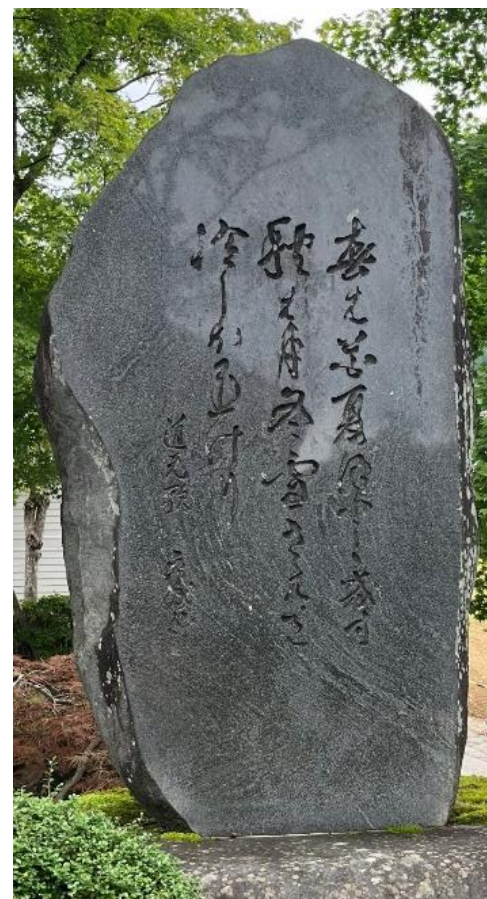 春は花夏ほとゝぎす
秋は月冬雪さえて
冷しかりけり
道元詠